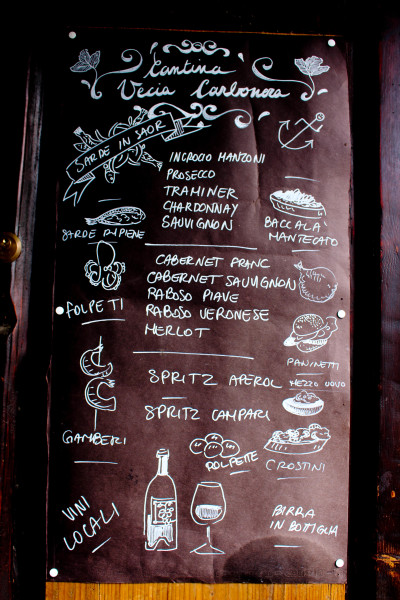 Cantina
Vecia Carbonera
SARDE IN SAOR
INCROCIO MANZONI
PROSECCO
TRAMINER
CHARDONNAY
SAUVIGNON
SARDE RIPIENE
BACCALA'
MANTECATO
CABERNET FRANC
CABERNET SAUVIGNON
RABOSO PIAVE
RABOSO VERONESE
MERLOT
FOLPETI
PANINETTI
MEZZO UOVO
SPRITZ APEROL
SPRITZ CAMPARI
GAMBERI
POLPETTE
CROSTINI
VINI
LOCALI
BIRRA
IN BOTTIGLIA